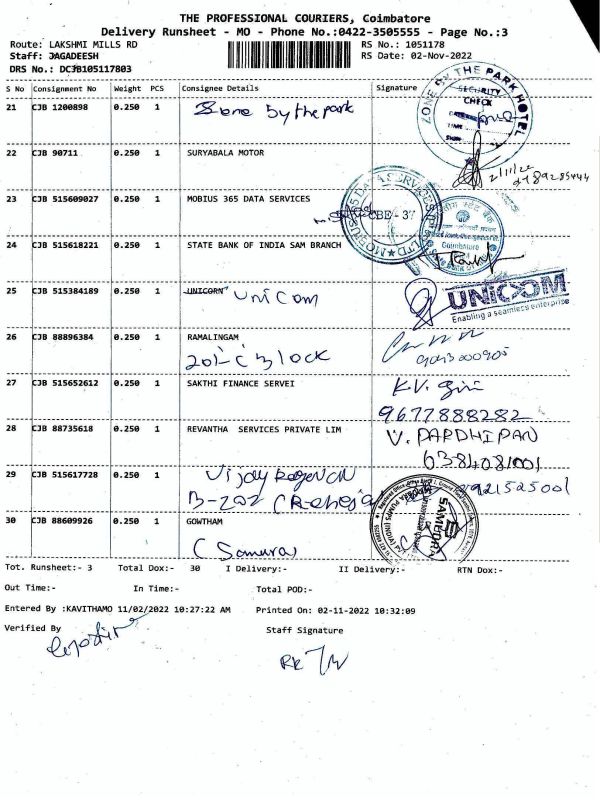 THE PROFESSIONAL COURIERS, Coimbatore
Delivery Runsheet - MO - Phone No.:0422-3505555 - Page No.:3
Route: LAKSHMI MILLS RD RS No.: 1051178
Staff: JAGADEESH RS Date: 02-Nov-2022
DRS No.: DCJB105117803
S No Consignment No Weight PCS Consignee Details Signature
21 CJB 1200898 0.250 1 Zone by the park
ZONE BY THE PARK HOTEL
SECURITY
CHECK
22 CJB 90711 0.250 1 SURYABALA MOTOR
2/11/22
23 CJB 515609027 0.250 1 MOBIUS 365 DATA SERVICES
MOBIUS 365 DATA SERVICES LTD
CBE - 37
24 CJB 515618221 0.250 1 STATE BANK OF INDIA SAM BRANCH
Coimbatore
25 CJB 515384189 0.250 1 UNICORN Unicom
UNICOM
Enabling a seamless enterprise
26 CJB 88896384 0.250 1 RAMALINGAM
201-C Block
27 CJB 515652612 0.250 1 SAKTHI FINANCE SERVEI K.V. Giri
9677888282
28 CJB 88735618 0.250 1 REVANTHA SERVICES PRIVATE LIM V. PARDHIPAN
6384081001
29 CJB 515617728 0.250 1 Vijay Ragavan
B-202 (Raheja
30 CJB 88609926 0.250 1 GOWTHAM
SAMEDRA
Tot. Runsheet:- 3 Total Dox:- 30 I Delivery:- II Delivery:- RTN Dox:-
Out Time:- In Time:- Total POD:-
Entered By :KAVITHAMO 11/02/2022 10:27:22 AM Printed On: 02-11-2022 10:32:09
Verified By Staff Signature